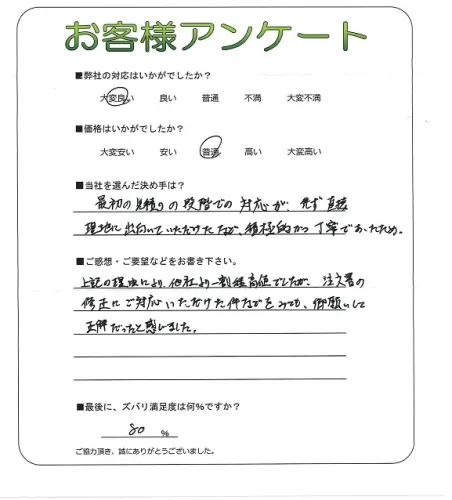 お客様アンケート
■弊社の対応はいかがでしたか？
大変良い 良い 普通 不満 大変不満
■価格はいかがでしたか？
大変安い 安い 普通 高い 大変高い
■当社を選んだ決め手は？
最初の見積りの段階での対応が、先ず直接
現地に出向いていただけたなが、積極的かつ丁寧であったため。
■ご感想・ご要望などをお書き下さい。
上記の理由により、他社より一割程高値でしたが、注文書の
修正にご対応いただけた件などをみても、御願いして
正解だったと感じました。
■最後に、ズバリ満足度は何％ですか？
80 ％
ご協力頂き、誠にありがとうございました。